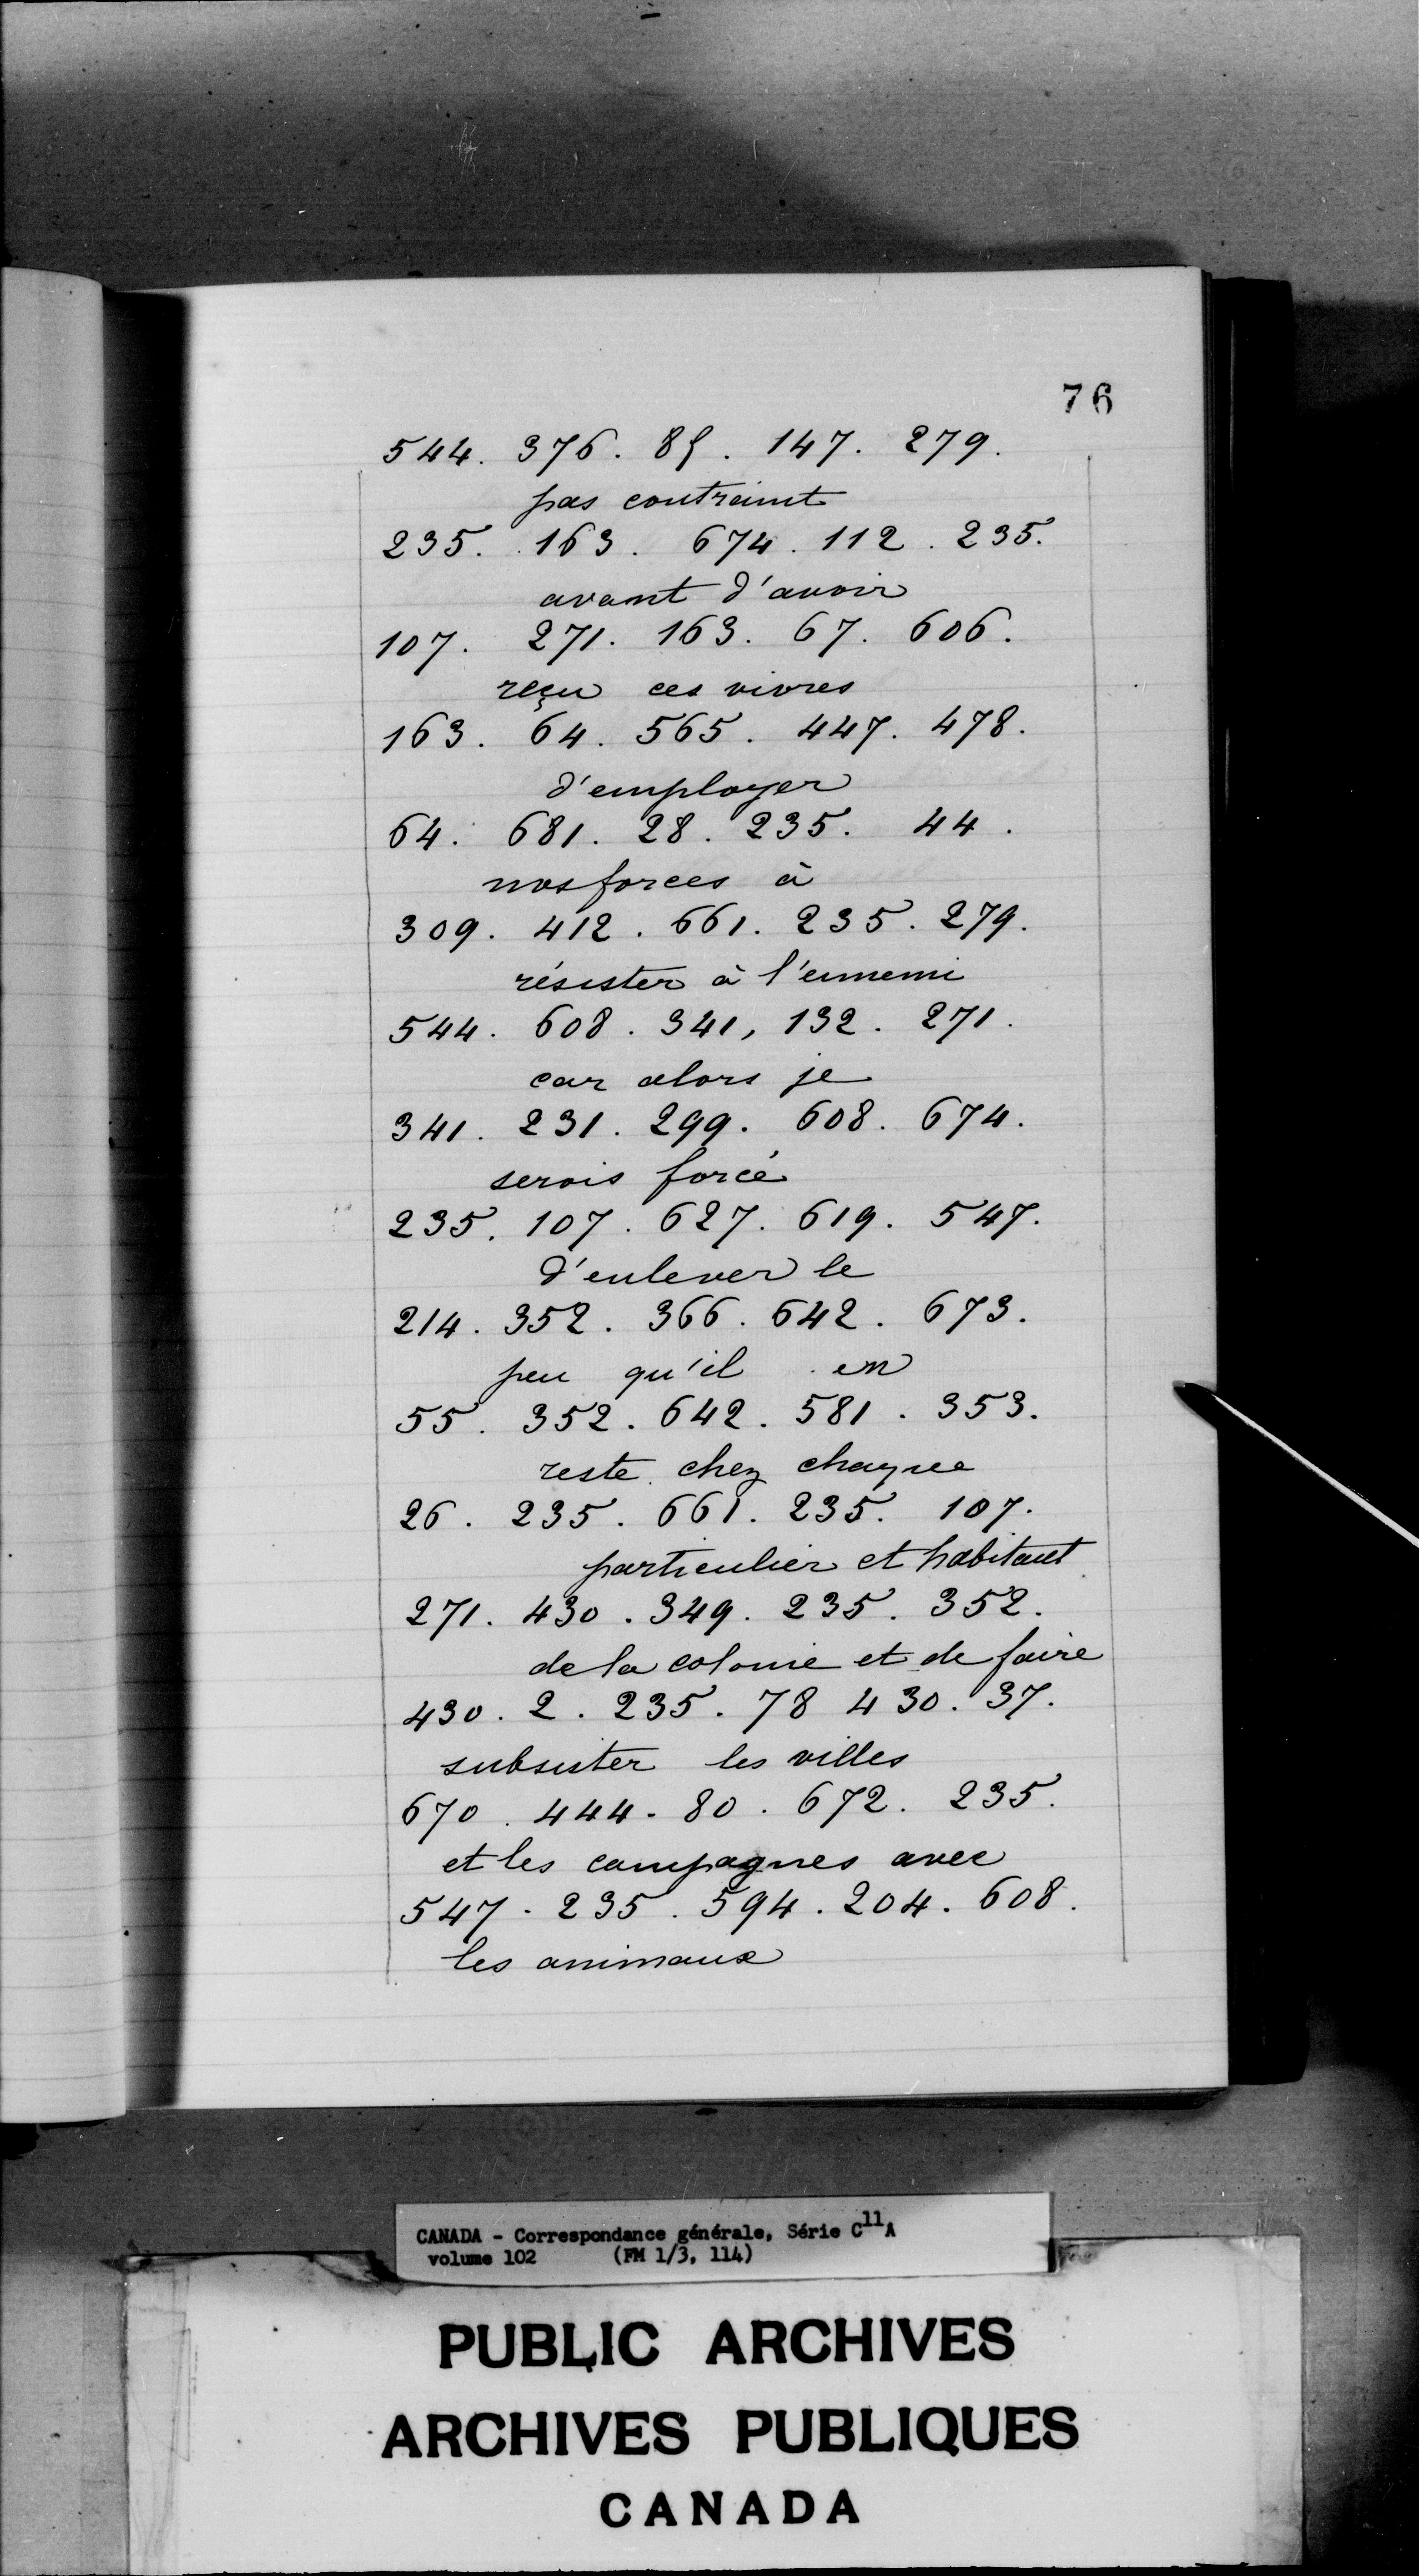 76
544. 376. 89. 147. 279.
pas contraint
235. 163. 674. 112. 235.
avant d'avoir
107. 271. 163. 67. 606.
reçu ces vivres
163. 64. 565. 447. 478.
d'employer
64. 681. 28. 235. 44.
nos forces à
309. 412. 661. 235. 279.
résister à l'ennemi
544. 608. 341, 132. 271.
car alors je
341. 231. 299. 608. 674.
serois forcé
235. 107. 627. 619. 547.
d'enlever le
214. 352. 366. 642. 673.
peu qu'il en
55. 352. 642. 581. 353.
reste chez chaque
26. 235. 661. 235. 107.
particulier et habitant
271. 430. 349. 235. 352.
de la colonie et de faire
430. 2. 235. 78 430. 37.
subsister les villes
670. 444. 80. 672. 235.
et les campagnes avec
547. 235. 594. 204. 608.
les animaux
CANADA - Correspondance générale, Série C11A
volume 102 (FM 1/3, 114)
PUBLIC ARCHIVES
ARCHIVES PUBLIQUES
CANADA